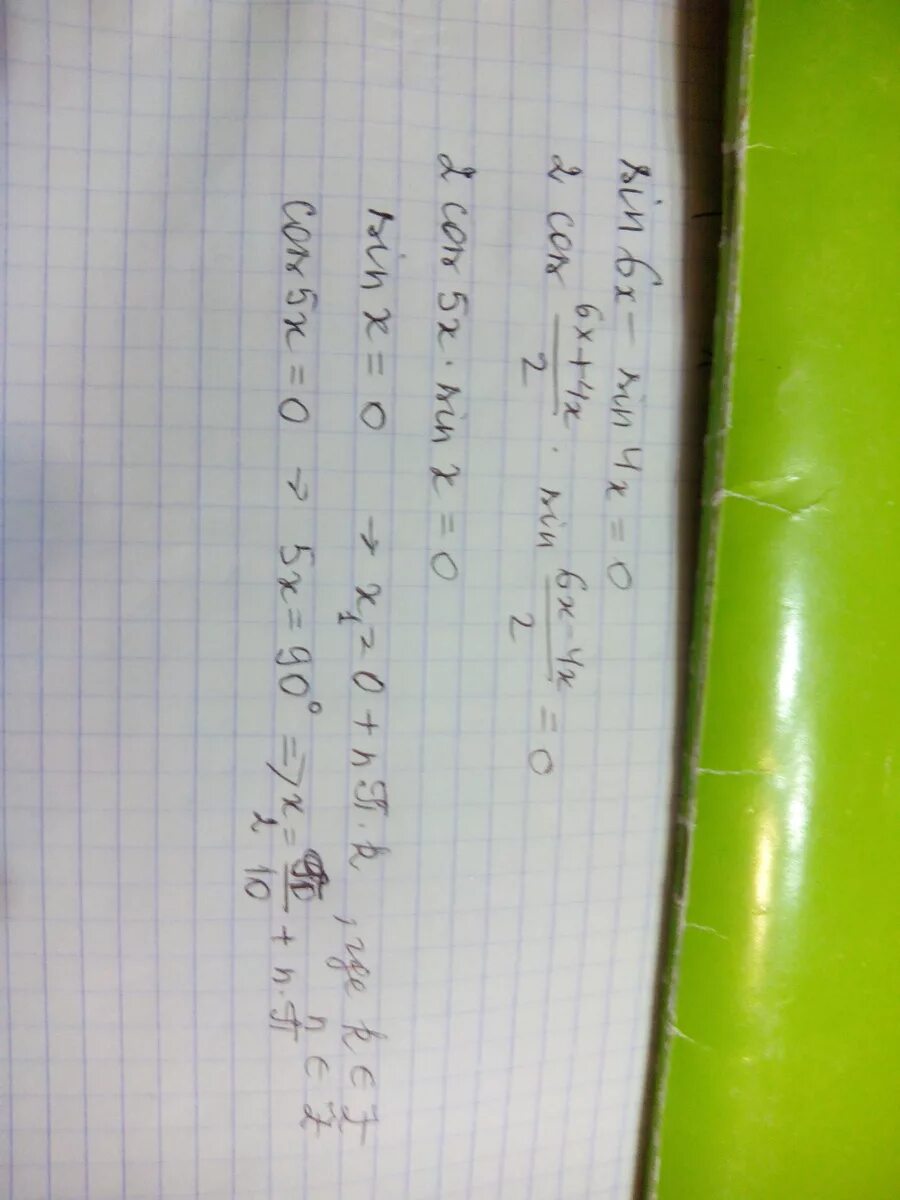 sin 6x - sin 4x = 0
2 cos (6x+4x)/2 · sin (6x-4x)/2 = 0
2 cos 5x · sin x = 0
sin x = 0 → x₁ = 0 + n π · k , где k ∈ Z
cos 5x = 0 → 5x = 90° => x₂ = π/10 + n·π n ∈ Z